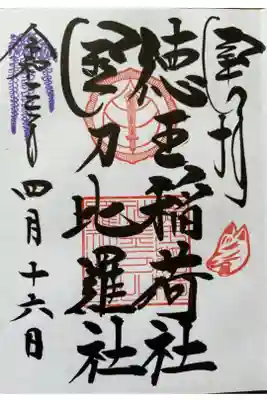 奉拝
徳王稲荷社
金刀比羅社
令和三年 四月十六日